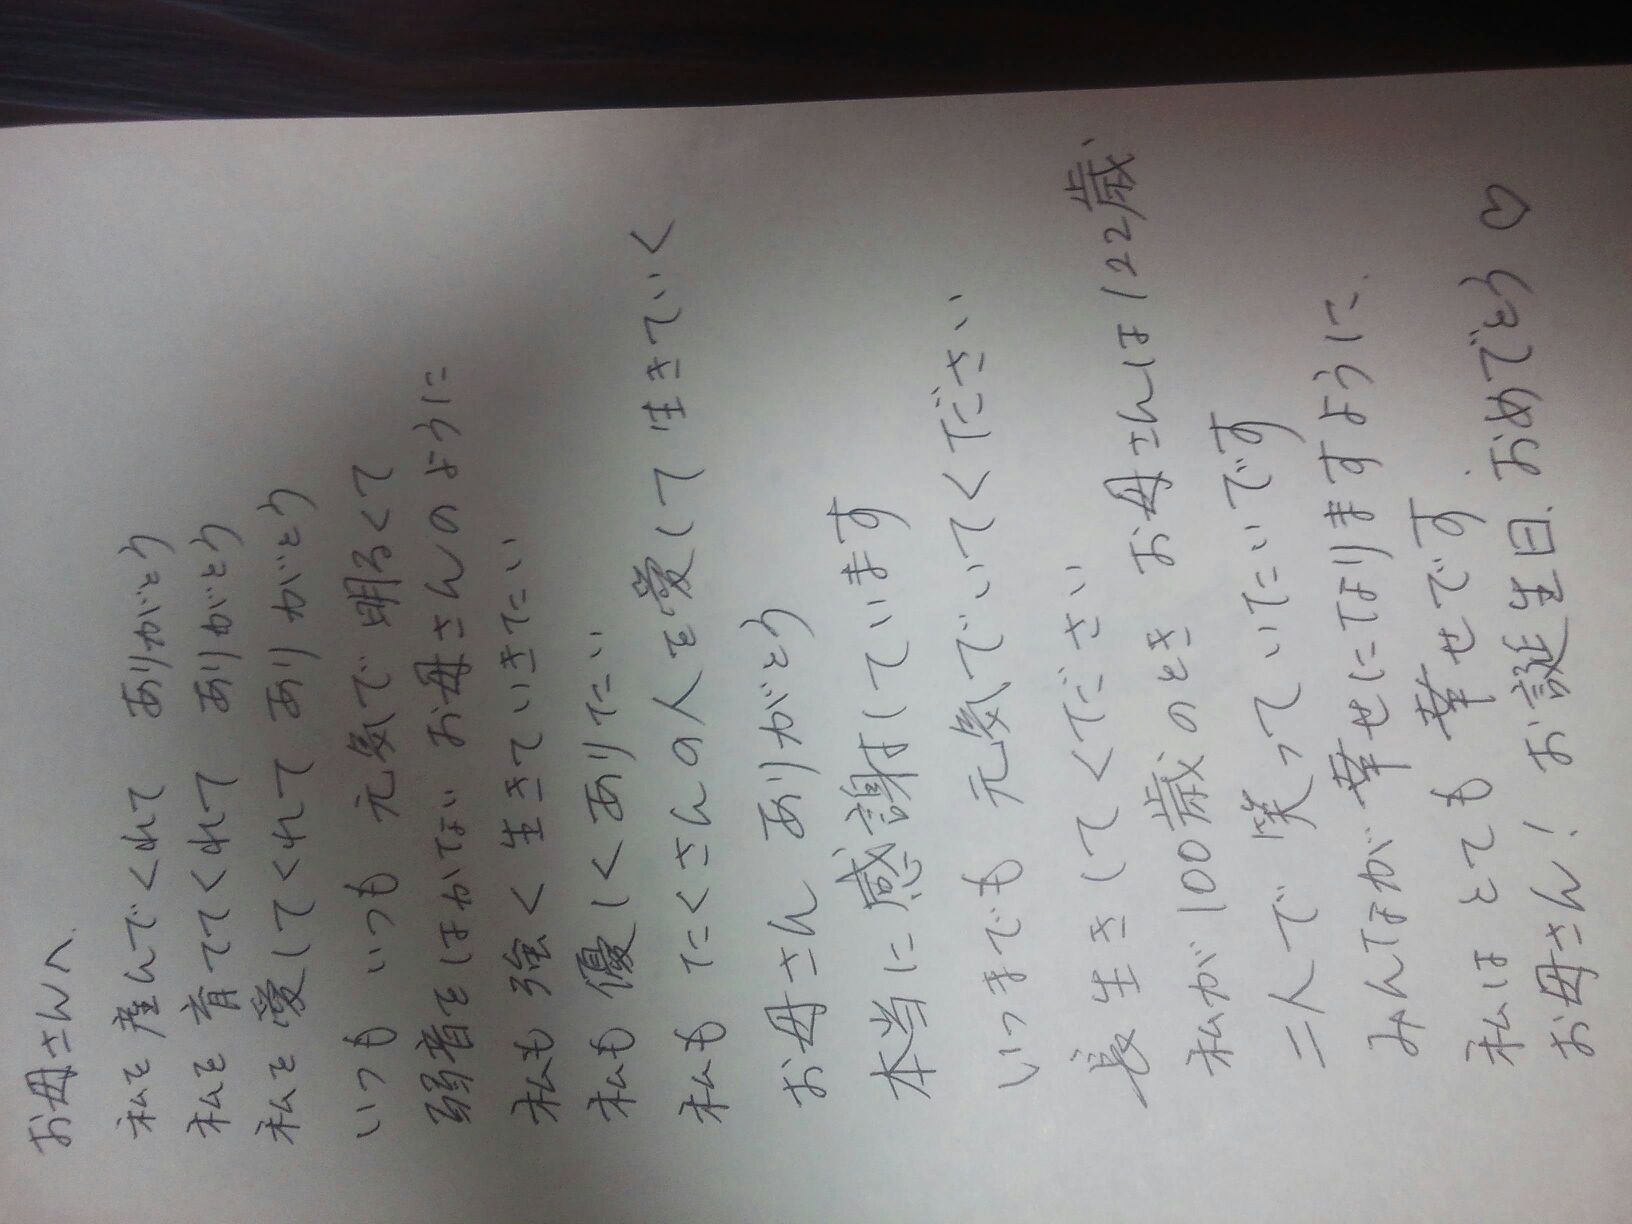 お母さんへ
私を産んでくれて ありがとう
私を育ててくれて ありがとう
私を愛してくれて ありがとう
いつも いつも 元気で明るくて
弱音をはかない お母さんのように
私も強く生きていきたい
私も優しくありたい
私も たくさんの人を愛して 生きていく
お母さん ありがとう
本当に感謝しています
いつまでも 元気でいてください
長生きしてください
私が100歳のとき お母さんは122歳
二人で 笑っていたいです
みんなが幸せになりますように
私は とても 幸せです
お母さん! お誕生日 おめでとう ♡